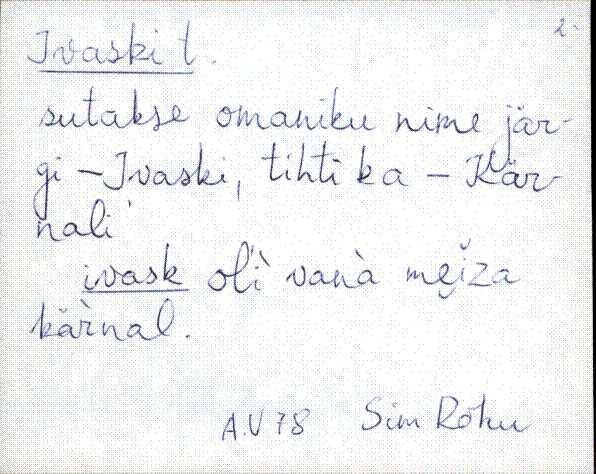 2.
Ivaski t.
sutakse omaniku nime jär-
gi - Ivaski, tihti ka - Kär-
nali
ivask oĺ̀i vanà mejža
kär̀nal.
A.V 78 Sim Rõhu